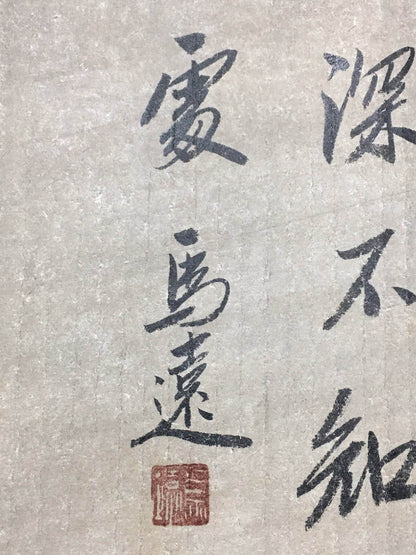 深不知
處 馬遠